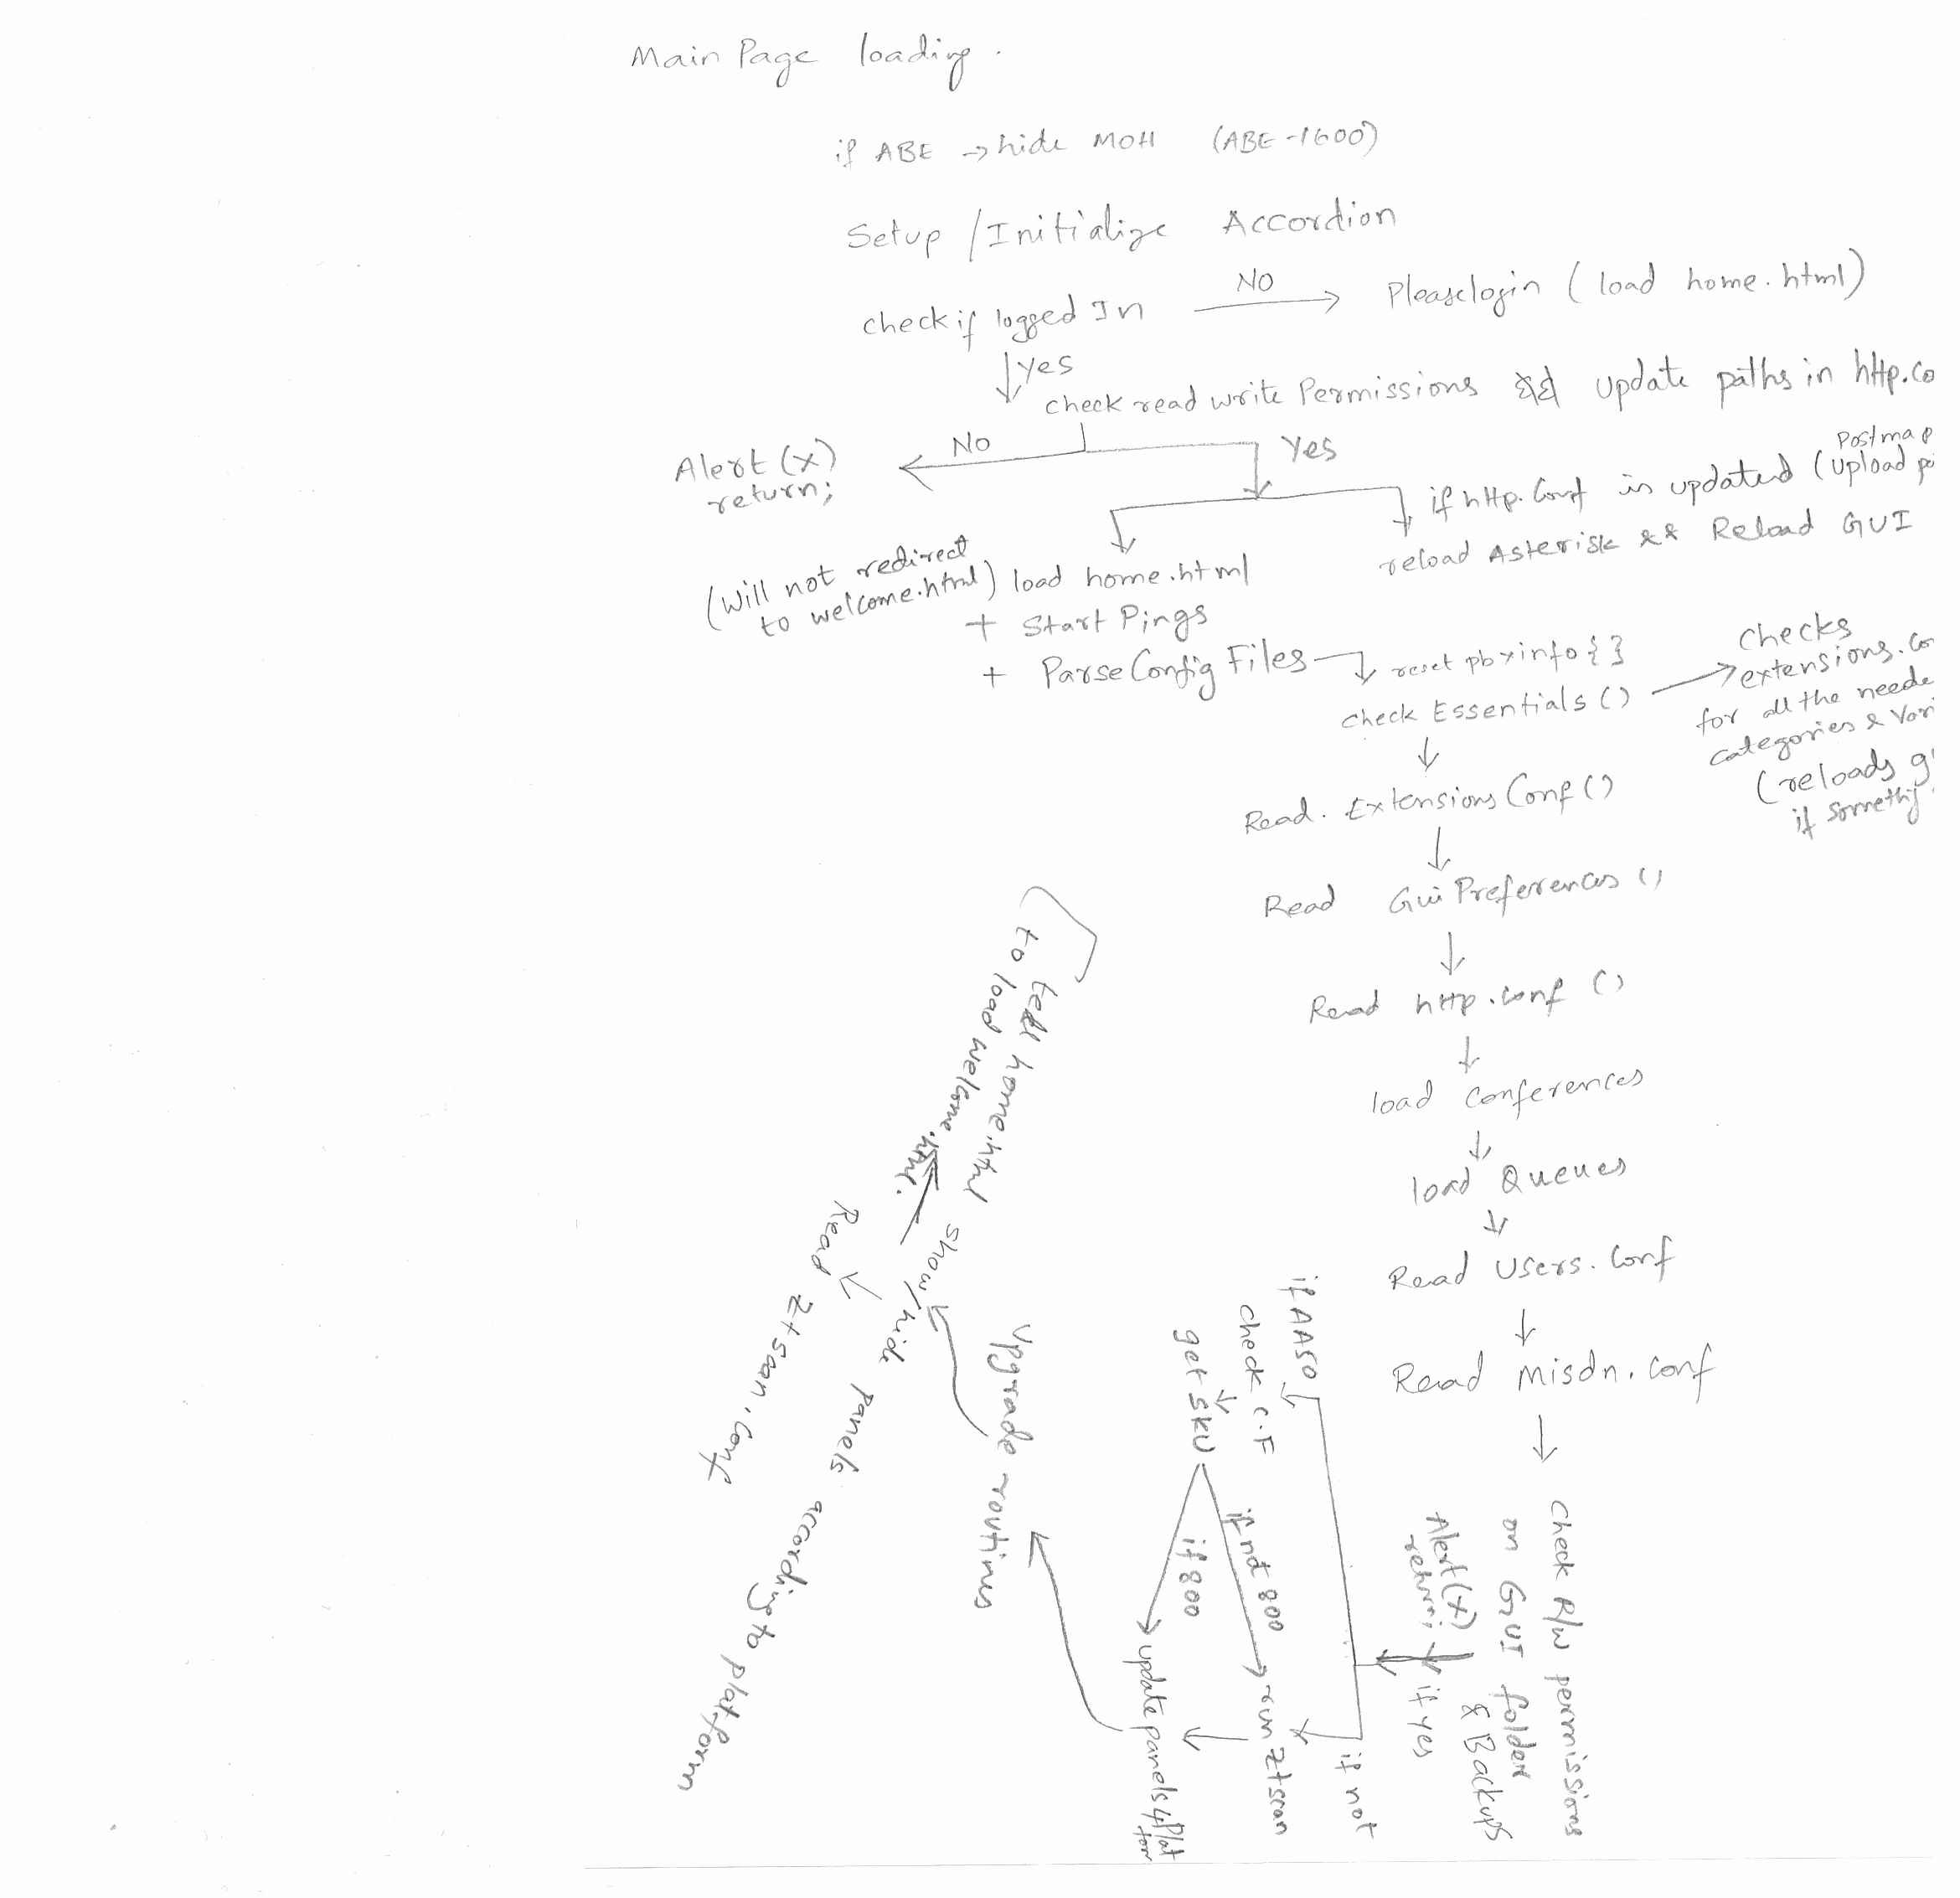 Main Page loading.
if ABE → hide MOH (ABE-1600)
Setup / Initialize Accordion
check if logged In
NO
Please login ( load home.html)
Yes
check read write Permissions && update paths in http.co
No
Alert (x)
return;
Yes
Postmap
if http.conf is updated (upload
reload Asterisk && Reload GUI
(will not redirect
to welcome.html)
load home.html
+ Start Pings
+ Parse Config Files
reset pbxinfo { }
check Essentials ()
checks
extensions.co
for all the neede
categories & Vari
(reloads g
if somethig
Read. Extensions Conf ()
Read Gui Preferences ()
Read http.conf ()
load Conferences
load Queues
Read Users.Conf
Read misdn.conf
check R/W permissions
on GUI folder
& Backups
Alert(x)
return;
if yes
if not
if AA50
check C.F
get SKU
if not 800
if 800
run ztscan
update panels 4 Plat
form
Upgrade routines
show/hide panels according to platform
Read ztscan.conf
tell home.html
to load welcome.html.